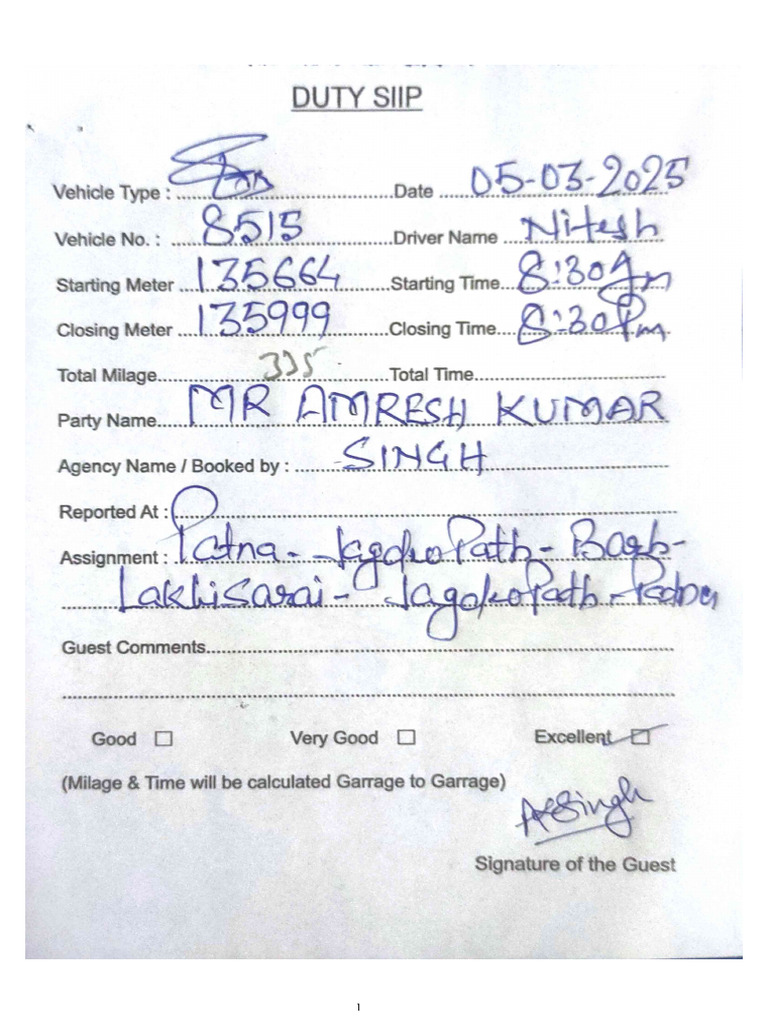 DUTY SIIP
Vehicle Type : Date 05-03-2025
Vehicle No. : 8515 Driver Name Nitesh
Starting Meter 135664 Starting Time 8:30Am
Closing Meter 135999 Closing Time 8:30Pm
Total Milage 335 Total Time
Party Name MR AMRESH KUMAR
Agency Name / Booked by : SINGH
Reported At :
Assignment : Patna - JagdeoPath - Barh -
Lakhisarai - JagdeoPath - Patna
Guest Comments
Good Very Good Excellent
(Milage & Time will be calculated Garrage to Garrage)
Signature of the Guest
1